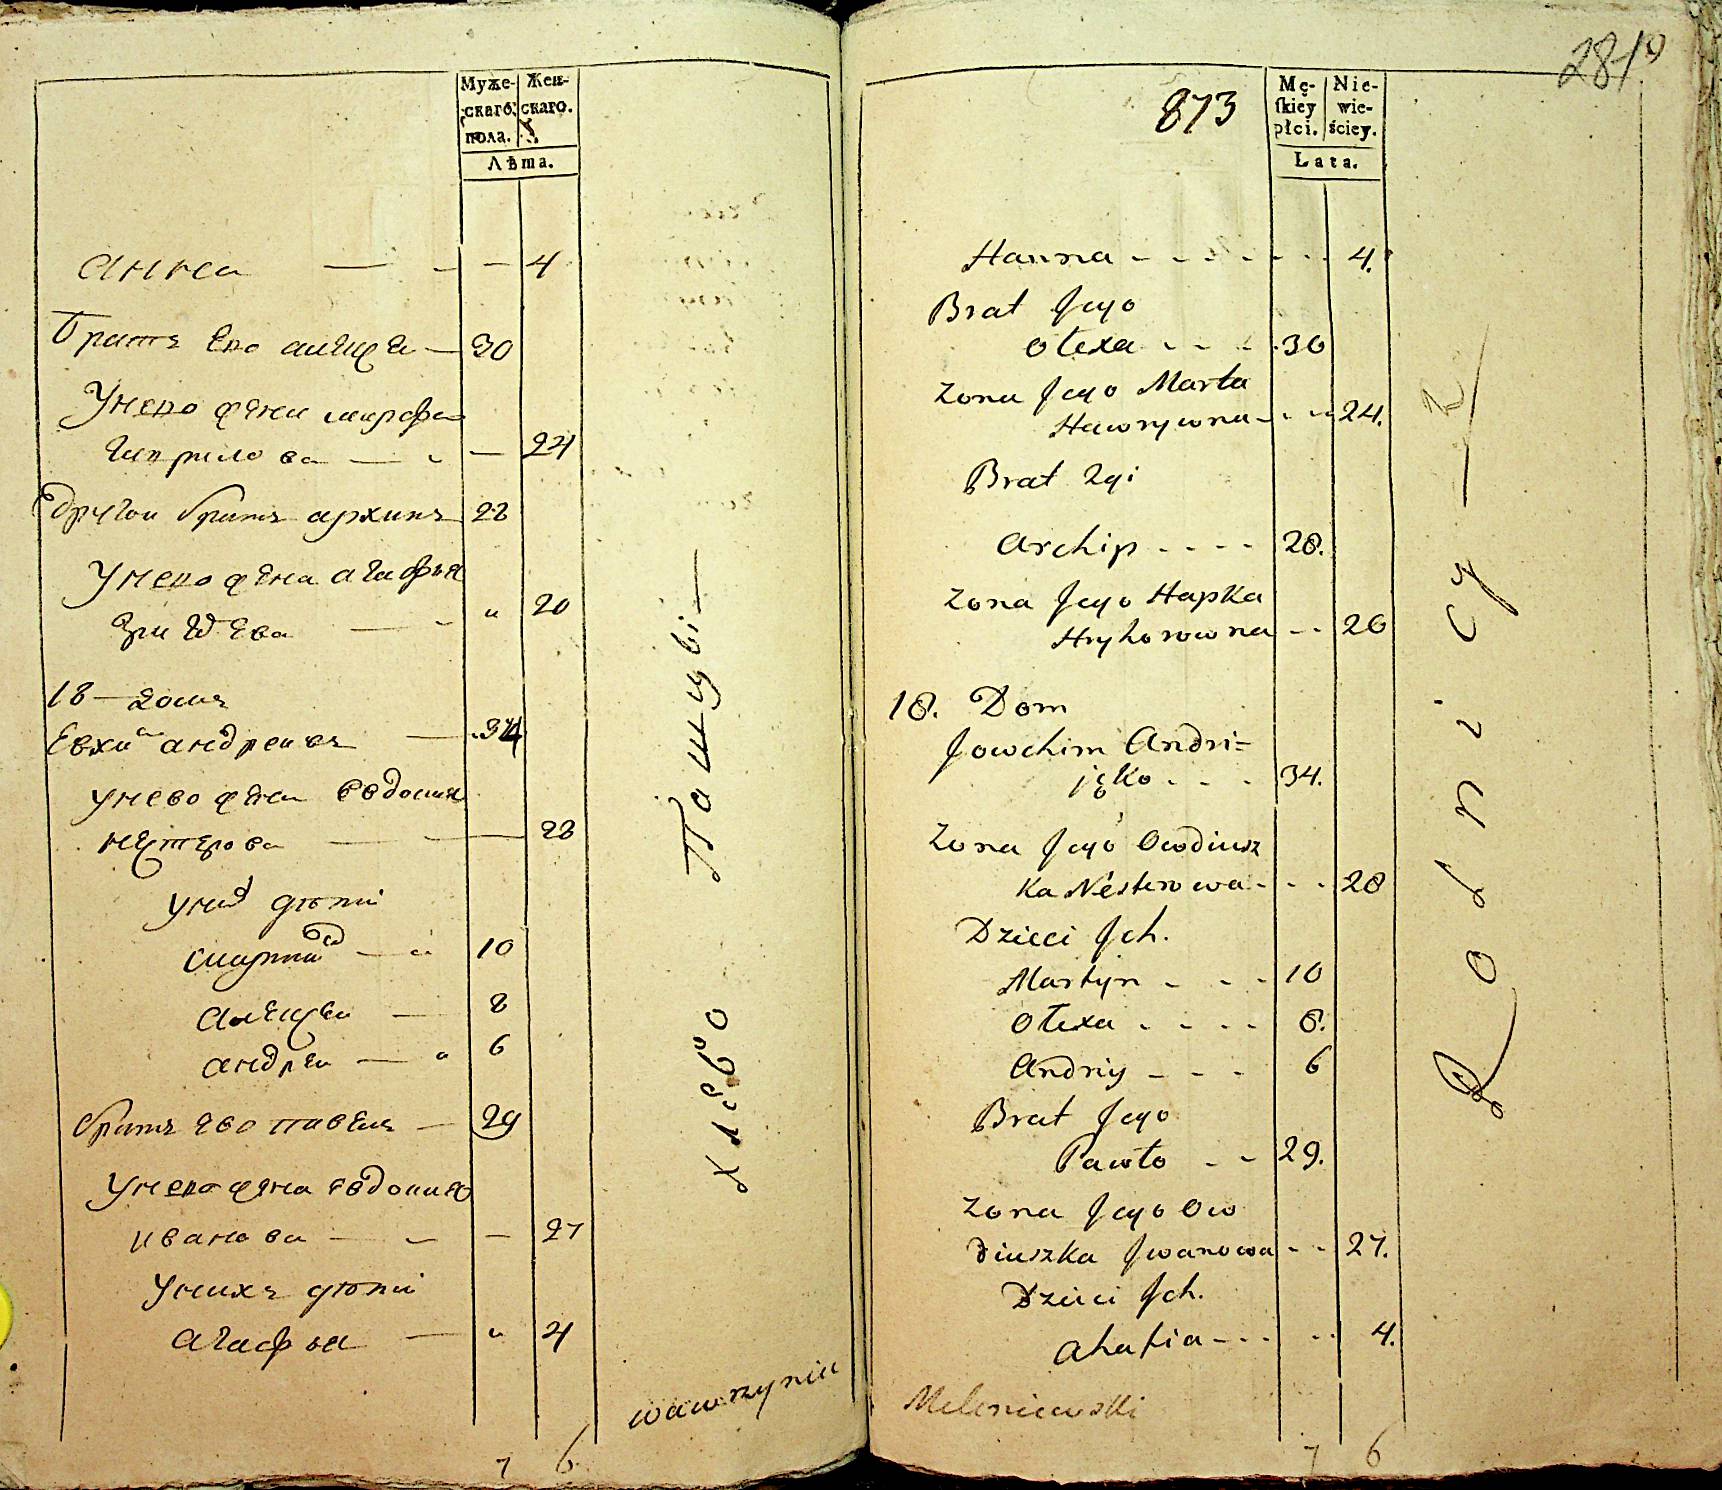 Муже-
скаго
пола.
Жен-
скаго.
Лѣта.
анна — - — 4
братъ ево алеѯеи — 30
У нево жена марфа
гаврилова — - — 24
другои братъ архипъ 28
У нево жена агафья
григорева — - " 20
18 — домъ
Евхим андреивъ — 34
у нево жена евдокия
нестерова — — 28
у них дѣти
мартин — " 10
алеѯеи — 8
андреи — " 6
братъ ево павелъ — 29
У нево жена евдокия
иванова — - — 27
У нихъ дѣти
агафья — " 4
Хлѣбо Пашцы —
wawrzynie
7 6
281
873
Mę-
skiey
płci.
Nie-
wie-
ściey.
Lata.
Hanna - - - - - - - 4.
Brat Jego
Ołexa - - - - 30
Zona Jego Marta
Hawrywna - - - 24.
Brat 2gi
Archip - - - - 28.
Zona Jego Hapka
Hryhorowna - - 20
18. Dom
Jowchim Andri=
jęko - - - 34.
Zona Jego Owdiusz
ka Nesterowa - - - 28
Dzieci Jch.
Martyn - - - 10
Ołexa - - - - 8.
Andriy - - - 6
Brat Jego
Pawło - - 29.
Zona Jego Ow
diuszka Jwanowa - - 27.
Dzieci Jch.
Ahafia - - - - - 4.
Rolnicy —
Meleniewski
7 6